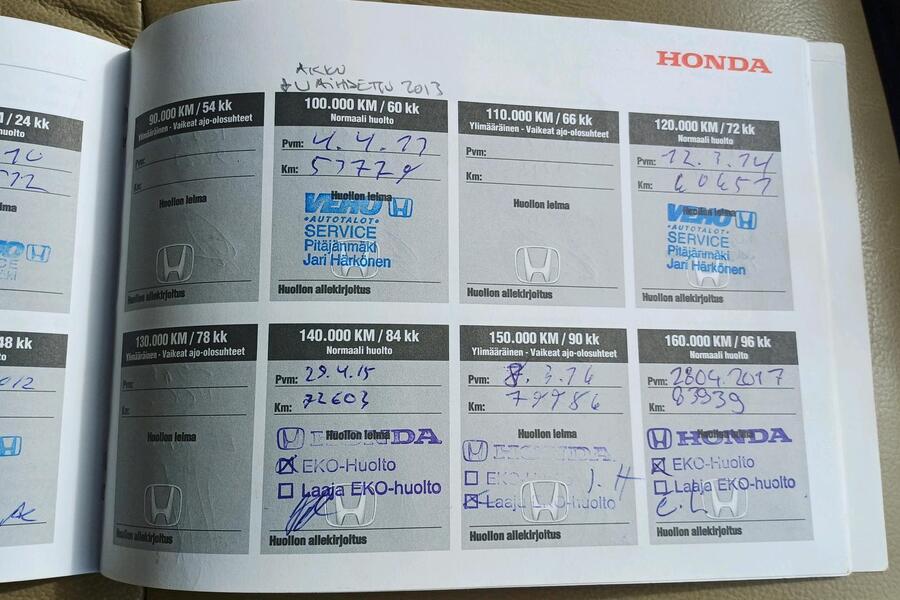 HONDA
AKKU
VAIHDETTU 2013
/ 24 kk
huolto
10
leima
48 kk
2012
90.000 KM / 54 kk
Ylimääräinen - Vaikeat ajo-olosuhteet
Pvm:
Km:
Huollon leima
Huollon allekirjoitus
100.000 KM / 60 kk
Normaali huolto
Pvm: 4.4.13
Km: 53779
Huollon leima
VEHO
•AUTOTALOT•
SERVICE
Pitäjänmäki
Jari Härkönen
Huollon allekirjoitus
110.000 KM / 66 kk
Ylimääräinen - Vaikeat ajo-olosuhteet
Pvm:
Km:
Huollon leima
Huollon allekirjoitus
120.000 KM / 72 kk
Normaali huolto
Pvm: 12.3.14
Km: 60651
Huollon leima
VEHO
•AUTOTALOT•
SERVICE
Pitäjänmäki
Jari Härkönen
Huollon allekirjoitus
130.000 KM / 78 kk
Ylimääräinen - Vaikeat ajo-olosuhteet
Pvm:
Km:
Huollon leima
Huollon allekirjoitus
140.000 KM / 84 kk
Normaali huolto
Pvm: 29.4.15
Km: 72603
Huollon leima
HONDA
EKO-Huolto
Laaja EKO-huolto
Huollon allekirjoitus
150.000 KM / 90 kk
Ylimääräinen - Vaikeat ajo-olosuhteet
Pvm: 8.3.16
Km: 79986
Huollon leima
HONDA
EKO-Huolto
J.H
Laaja EKO-huolto
Huollon allekirjoitus
160.000 KM / 96 kk
Normaali huolto
Pvm: 28.04.2017
Km: 83939
Huollon leima
HONDA
EKO-Huolto
Laaja EKO-huolto
Huollon allekirjoitus